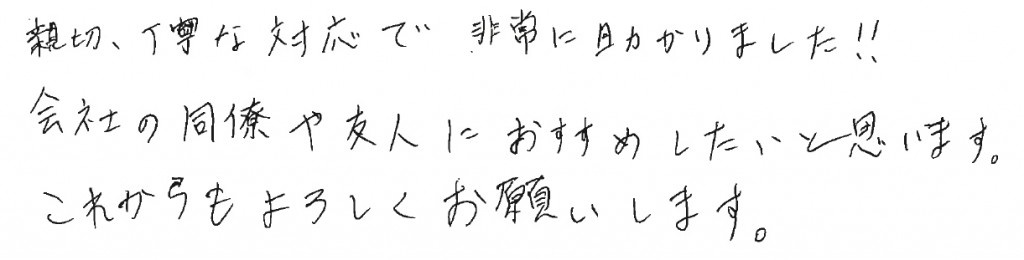 親切、丁寧な対応で 非常に助かりました!!
会社の同僚や友人におすすめしたいと思います。
これからもよろしくお願いします。